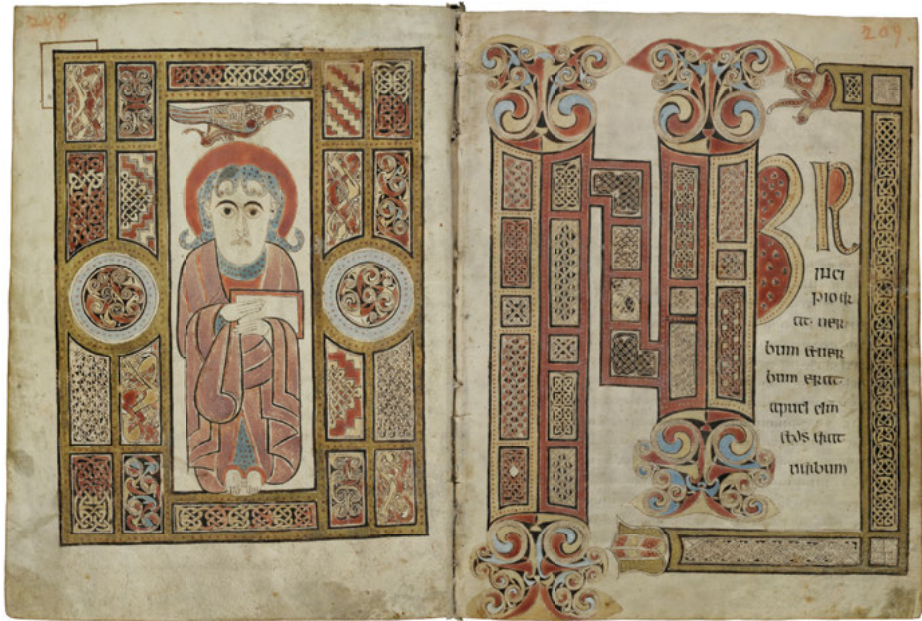 208
209
INP R
inci
pio er
at uer
bum et uer
bum erat
apud dm̄
et ds̄ erat
uerbum